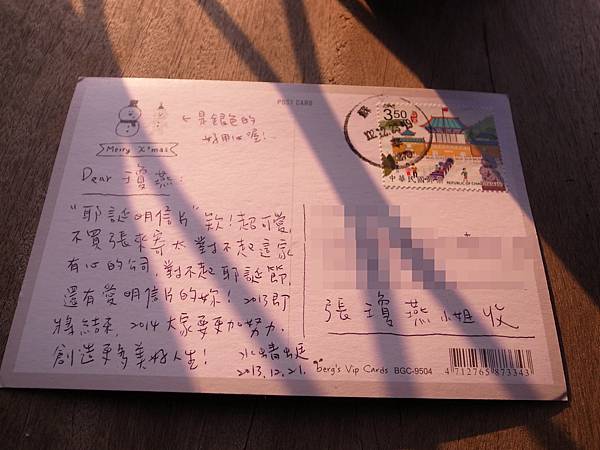 POST CARD
←是銀色的
好用心喔!
Merry X'mas
Dear 瓊燕:
"耶誕明信片"欸!超可愛,
不買張來寄太對不起這家
有心的公司,對不起耶誕節,
還有愛明信片的妳! 2013即
將結束, 2014大家要更加努力,
創造更多美好人生!
2013.12.21.
3.50
中華民國郵票
REPUBLIC OF CHINA
張瓊燕 小姐 收
berg's Vip Cards BGC-9504
4 712765 873343